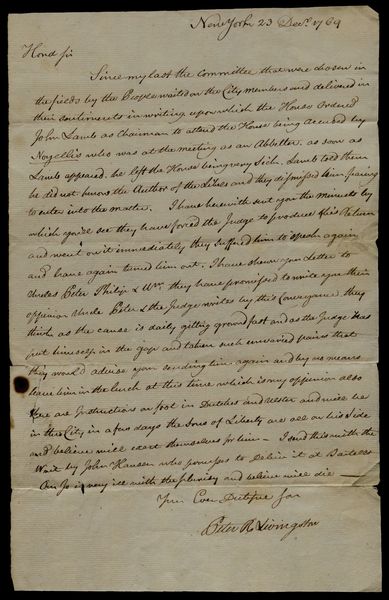 New York 23 Decr. 1769
Hond Sir
Since my last the Committee that were chosen in
the fields by the People waited on the City members and delivered in
their sentiments in writing upon which the House ordered
John Lamb as Chairman to attend the House being accused by
who was at the meeting as an Abbetter. as soon as
Lamb appeared. he left the House being very Sick. Lamb told them
he did not know the Author of the Libes and they dismissed him fearing
to enter into the matter. I have herewith sent you the minutes by
which you'll see they have forced the Judge to produce his Return
and went on it immediately they suffered him to speak again
and have again turned him out. I have shewn your Letter to
Uncles Peter Philip & Wm. they have promised to write you their
oppinion Uncle Peter & the Judge writes by this Conveyance they
think as the cause is daily gitting ground fast and as the Judge has
put himself in the gap and taken such unwaried pains that
they would advise your sending him again and by no means
leave him in the lurch at this time which is my oppinion also
there are Instructions on foot in Dutches and Ulster and will be
in the City in a few days the Sons of Liberty are all on his Side
and believe will exert themselves for him — I send this with the
by John Hansen who promises to deliver it at
is very ill with the plurisy and believe will die —
Your Ever Dutifull Son
Peter R Livingston